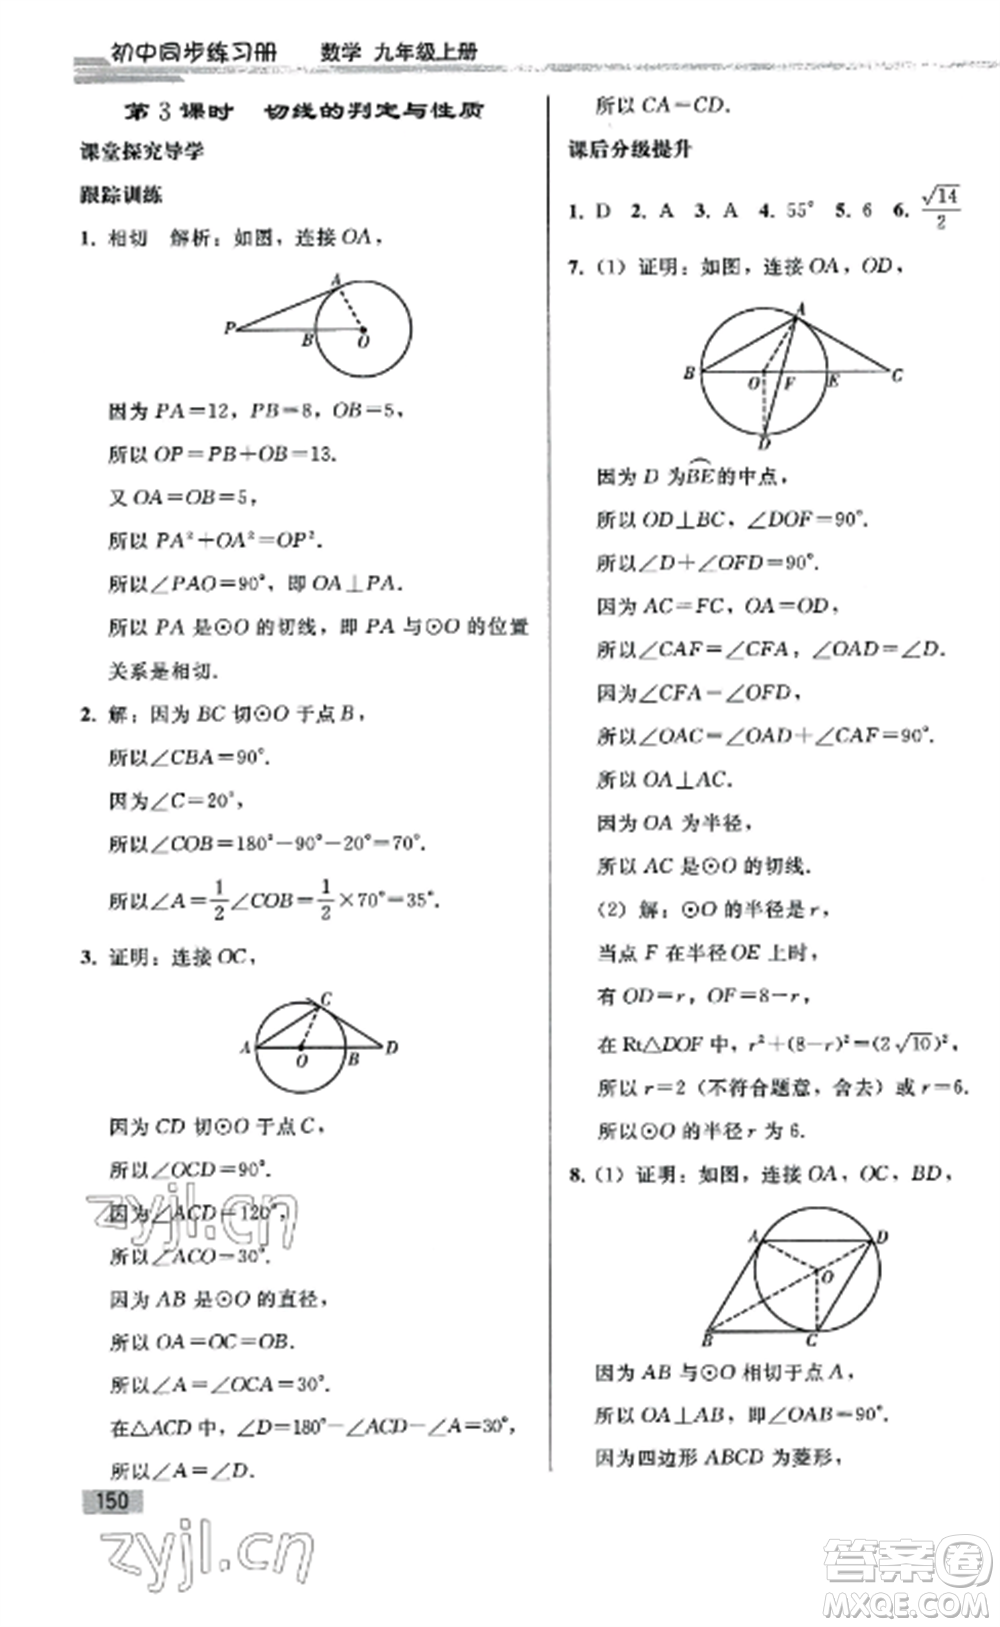 初中同步练习册 数学 九年级上册
第 3 课时 切线的判定与性质
课堂探究导学
跟踪训练
1. 相切 解析：如图，连接 OA，
A
P
B
O
因为 PA＝12，PB＝8，OB＝5，
所以 OP＝PB＋OB＝13.
又 OA＝OB＝5，
所以 PA²＋OA²＝OP².
所以∠PAO＝90°，即 OA⊥PA.
所以 PA 是⊙O 的切线，即 PA 与⊙O 的位置
关系是相切.
2. 解：因为 BC 切⊙O 于点 B，
所以∠CBA＝90°.
因为∠C＝20°，
所以∠COB＝180°－90°－20°＝70°.
所以∠A＝1/2∠COB＝1/2×70°＝35°.
3. 证明：连接 OC，
C
A
O
B
D
因为 CD 切⊙O 于点 C，
所以∠OCD＝90°.
因为∠ACD＝120°，
所以∠ACO＝30°.
因为 AB 是⊙O 的直径，
所以 OA＝OC＝OB.
所以∠A＝∠OCA＝30°.
在△ACD 中，∠D＝180°－∠ACD－∠A＝30°，
所以∠A＝∠D.
150
所以 CA＝CD.
课后分级提升
1. D 2. A 3. A 4. 55° 5. 6 6. √14/2
7. （1）证明：如图，连接 OA，OD，
A
B
O
F
E
C
D
因为 D 为BE的中点，
所以 OD⊥BC，∠DOF＝90°.
所以∠D＋∠OFD＝90°.
因为 AC＝FC，OA＝OD，
所以∠CAF＝∠CFA，∠OAD＝∠D.
因为∠CFA＝∠OFD，
所以∠OAC＝∠OAD＋∠CAF＝90°.
所以 OA⊥AC.
因为 OA 为半径，
所以 AC 是⊙O 的切线.
（2）解：⊙O 的半径是 r，
当点 F 在半径 OE 上时，
有 OD＝r，OF＝8－r，
在 Rt△DOF 中，r²＋(8－r)²＝(2√10)²，
所以 r＝2（不符合题意，舍去）或 r＝6.
所以⊙O 的半径 r 为 6.
8. （1）证明：如图，连接 OA，OC，BD，
A
D
O
B
C
因为 AB 与⊙O 相切于点 A，
所以 OA⊥AB，即∠OAB＝90°.
因为四边形 ABCD 为菱形，
zyjl.cn
zyjl.cn
答案卷
MXQE.COM